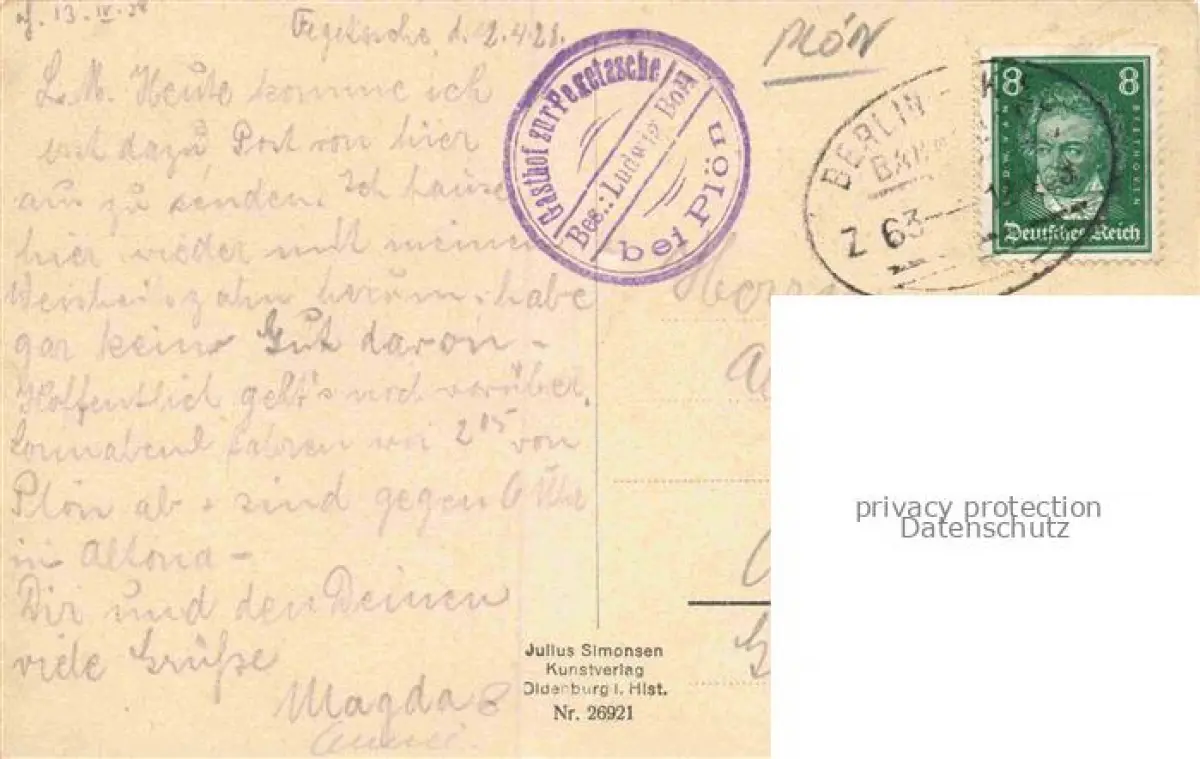 13. IV. 28
Fegetasche, d. 2.4.28.
PLÖN
L. M. Heute komme ich
erst dazu Post von hier
aus zu senden. Ich hause
hier wieder mit meinem
Weisheitszahn herum, habe
gar kein Gut davon -
Hoffentlich geht's noch vorüber.
Sonnabend fahren wir 2 15 von
Plön ab, sind gegen 6 Uhr
in Altona -
Dir und den Deinen
viele Grüße
Magda
Gasthof zur Fegetasche
Bes.: Ludwig Boll
bei Plön
BERLIN
BAH
Z 63
8 8
LUDW. VAN
BEETHOVEN
Deutsches Reich
Herrn
privacy protection
Datenschutz
Julius Simonsen
Kunstverlag
Oldenburg i. Hlst.
Nr. 26921